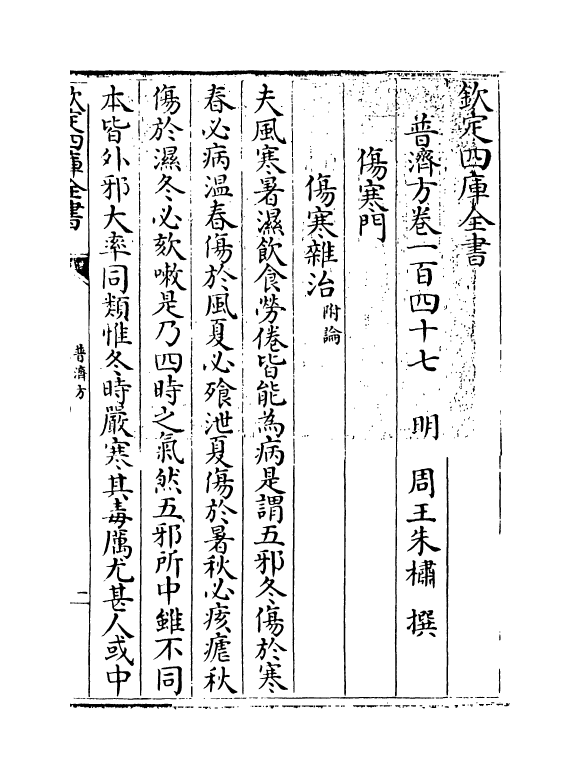 欽定四庫全書
普濟方卷一百四十七　明　周王朱橚　撰
傷寒門
傷寒雜治附論
夫風寒暑濕飲食勞倦皆能為病是謂五邪冬傷於寒
春必病溫春傷於風夏必飱泄夏傷於暑秋必痎瘧秋
傷於濕冬必欬嗽是乃四時之氣然五邪所中雖不同
本皆外邪大率同類惟冬時嚴寒其毒厲尤甚人或中
欽定四庫全書
普濟方
一